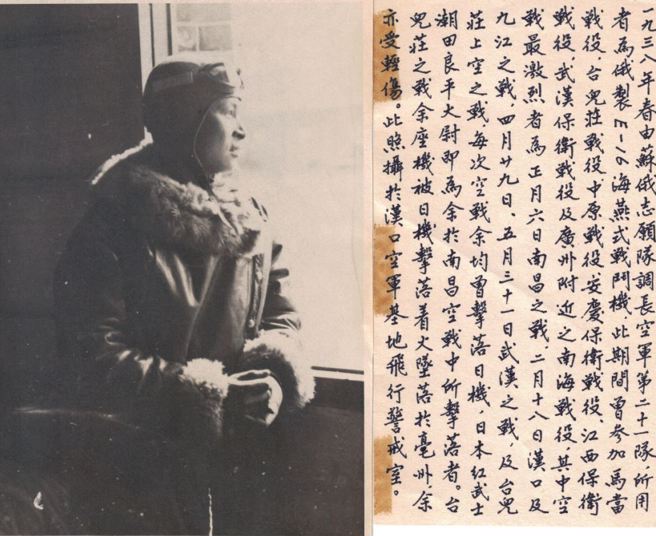 一九三八年春由蘇俄志願隊調長空軍第二十一隊，所用
者為俄製E—16海燕式戰鬥機，此期間曾參加馬當
戰役、台兒莊戰役中原戰役、安慶保衛戰役、江西保衛
戰役、武漢保衛戰役及廣州附近之南海戰役，其中空
戰最激烈者為正月六日南昌之戰、二月十八日漢口及
九江之戰、四月廿九日、五月三十一日武漢之戰，及台兒
莊上空之戰，每次空戰余均曾擊落日機，日本紅武士
潮田良平大尉即為余於南昌空戰中所擊落者。台
兒莊之戰余座機被日機擊落着火墜落於亳州，余
亦受輕傷。此照攝於漢口空軍基地飛行警戒室。